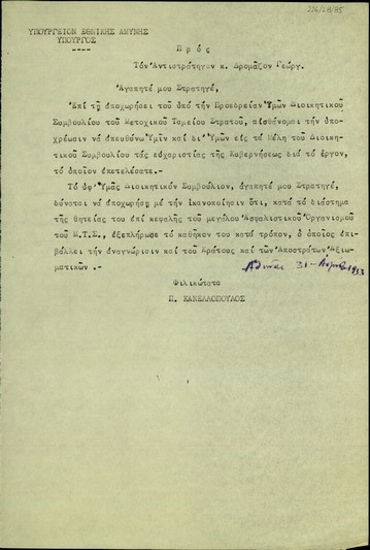 226/28/95
ΥΠΟΥΡΓΕΙΟΝ ΕΘΝΙΚΗΣ ΑΜΥΝΗΣ
ΥΠΟΥΡΓΟΣ
----
Πρός
Τόν Αντιστράτηγον κ. Δρομάζον Γεώργ.
Αγαπητέ μου Στρατηγέ,
Επί τῇ ἀποχωρήσει τοῦ ὑπό τήν Προεδρείαν Ὑμῶν Διοικητικοῦ
Συμβουλίου τοῦ Μετοχικοῦ Ταμείου Στρατοῦ, αἰσθάνομαι τήν ὑπο-
χρέωσιν νά ἀπευθύνω Ὑμῖν καί δι' Ὑμῶν εἰς τά Μέλη τοῦ Διοικη-
τικοῦ Συμβουλίου τάς εὐχαριστίας τῆς Κυβερνήσεως διά τό ἔργον,
τό ὁποῖον ἐπετελέσατε.-
Τό ὑφ' Ὑμᾶς Διοικητικόν Συμβούλιον, ἀγαπητέ μου Στρατηγέ,
δύναται νά ἀποχωρήσῃ μέ τήν ἱκανοποίησιν ὅτι, κατά τό διάστημα
τῆς θητείας του ἐπί κεφαλῆς τοῦ μεγάλου Ἀσφαλιστικοῦ Ὀργανισμοῦ
τοῦ Μ.Τ.Σ., ἐξεπλήρωσε τό καθῆκον του κατά τρόπον, ὁ ὁποῖος ἐπι-
βάλλει τήν ἀναγνώρισιν καί τοῦ Κράτους καί τῶν Ἀποστράτων Ἀξιω-
ματικῶν.-
Ἀθῆναι 31 - 1953
Φιλικώτατα
Π. ΚΑΝΕΛΛΟΠΟΥΛΟΣ